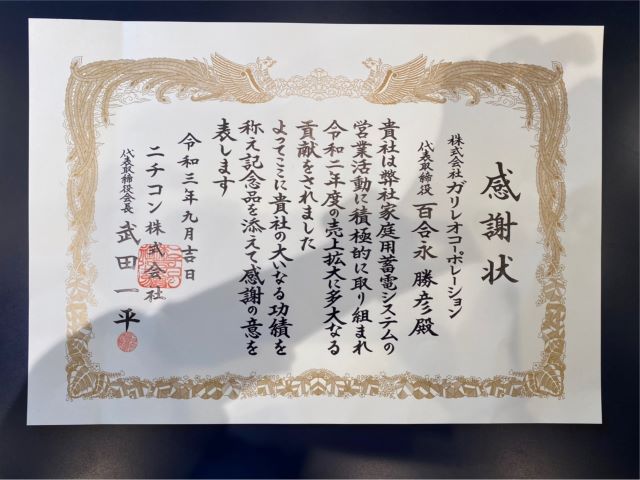 感謝状
株式会社ガリレオコーポレーション
代表取締役 百合永 勝彦殿
貴社は弊社家庭用蓄電システムの
営業活動に積極的に取り組まれ
令和二年度の売上拡大に多大なる
貢献をされました
よってここに貴社の大いなる功績を
称え記念品を添えて感謝の意を
表します
令和三年九月吉日
ニチコン株式会社
代表取締役会長 武田一平